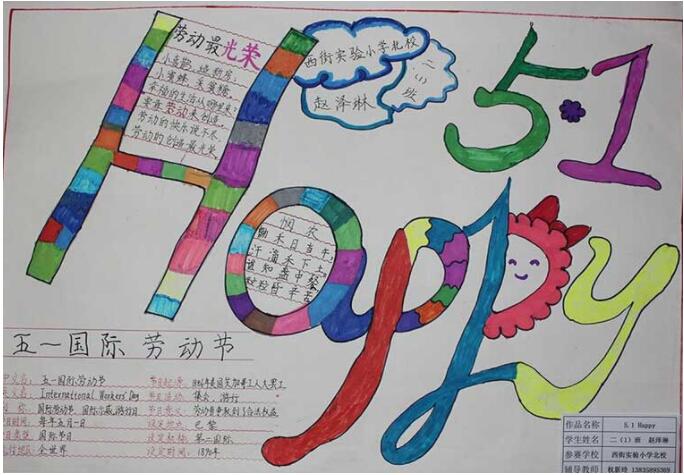 劳动最光荣
小喜鹊,造新房;
小蜜蜂,采蜜糖。
幸福的生活从哪里来?
要靠劳动来创造。
劳动的快乐说不尽,
劳动的创造最光荣。
西街实验小学北校
二(1)班
赵泽琳
5·1
Happy
悯农
锄禾日当午,
汗滴禾下土。
谁知盘中餐
粒粒皆辛苦
五一国际劳动节
中文名: 五一国际劳动节
International Workers' Day 节日活动: 集会,游行
国际劳动节、国际示威游行日 节日意义: 劳动者争取到了合法权益
时间: 每年五月一日 设定地点: 巴黎
节日类型: 国际节日 设定机构: 第二国际
全世界 设定时间:
作品名称 5.1 Happy
学生姓名 二(1)班 赵泽琳
参赛学校 西街实验小学北校
辅导教师